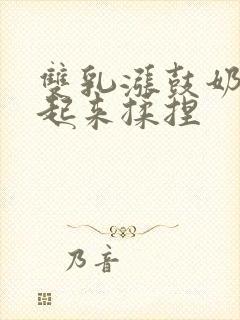 雙乳漲鼓奶
起来揉捏
乃音